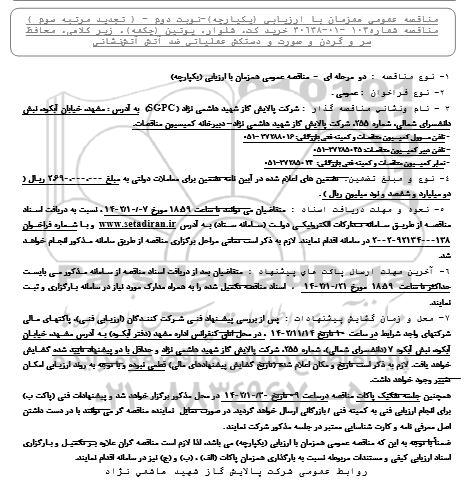 مناقصه عمومی همزمان با ارزیابی (یکپارچه)-نوبت دوم - ( تجدید مرتبه سوم )
مناقصه شماره ۱۰۳-۰۱-۳۰۶۳۸ خرید کت، شلوار، پوتین (چکمه)، زیر کلاهی، محافظ
سر و گردن و صورت و دستکش عملیاتی ضد آتش آتش‌نشانی
۱- نوع مناقصه : دو مرحله ای - مناقصه عمومی همزمان با ارزیابی (یکپارچه)
۲- نوع فراخوان : عمومی.
۳- نام ونشانی مناقصه گذار : شرکت پالایش گاز شهید هاشمی نژاد (SGPC) به آدرس : مشهد، خیابان آبکوه، نبش
دانشسرای شمالی، شماره ۲۵۵، شرکت پالایش گاز شهید هاشمی نژاد – دبیرخانه کمیسیون مناقصات.
- تلفن مسوول کمیسیون مناقصات و کمیته فنی بازرگانی: ۳۷۲۸۸۰۱۶-۰۵۱
- تلفن دبیر کمیسیون مناقصات: ۳۷۲۸۵۰۳۵-۰۵۱
- نمابر کمیسیون مناقصات و کمیته فنی بازرگانی: ۳۷۲۸۵۰۲۳-۰۵۱
۴- نوع و مبلغ تضمین: تضمین های اعلام شده در آیین نامه تضمین برای معاملات دولتی به مبلغ ۲،۶۹۰،۰۰۰،۰۰۰ ریال (
دو میلیارد و ششصد و نود میلیون ریال ).
۵- نحوه و مهلت دریافت اسناد : متقاضیان می توانند تا ساعت ۱۸:۵۹ مورخ ۱۴۰۲/۱۰/۰۷ ، نسبت به دریافت اسناد
مناقصه از طریق سامانه تدارکات الکترونیکی دولت (سامانه ستاد) به آدرس www.setadiran.ir و با شماره فراخوان
۲۰۰۲۰۹۲۱۳۴۰۰۰۱۳۸ در سامانه اقدام نمایند. لازم به ذکر است تمامی مراحل برگزاری مناقصه از طریق سامانه مذکور انجام خواهد
شد.
۶- آخرین مهلت ارسال پاکت های پیشنهاد : متقاضیان بعد از دریافت اسناد مناقصه از سامانه مذکور می بایست
حداکثر تا ساعت ۱۸:۵۹ مورخ ۱۴۰۲/۱۰/۲۱ ، اسناد مناقصه تکمیل شده را به همراه مدارک مورد نیاز در سامانه بارگزاری و ثبت
نمایند.
۷- محل و زمان گشایش پیشنهادات : پس از بررسی پیشنهاد فنی شرکت کنندگان (ارزیابی فنی)، پاکتهای مالی
شرکتهای واجد شرایط در ساعت ۱۰ تاریخ ۱۴۰۲/۱۱/۱۴ ، در محل اتاق کنفرانس اداره مشهد (دفتر آبکوه) به آدرس مشهد، خیابان
آبکوه، نبش آبکوه ۷ (دانشسرای شمالی)، شماره ۲۵۵، شرکت پالایش گاز شهید هاشمی نژاد و حداقل با دو پیشنهاد تایید شده گشایش
خواهد یافت. لازم به ذکر است تاریخ و مکان اعلام شده (تاریخ گشایش پیشنهادهای مالی) قطعی نبوده و با توجه به روند ارزیابی امکان
تغییر وجود خواهد داشت.
همچنین جلسه تفکیک پاکات مناقصه درساعت ۰۹ تاریخ ۱۴۰۲/۱۰/۳۰ در محل مذکور برگزار خواهد شد و پیشنهادات فنی (پاکت ب)
برای انجام ارزیابی فنی به کمیته فنی / بازرگانی ارسال خواهد گردید. در صورت تمایل نماینده مناقصه گر می توانند با در دست داشتن
اصل معرفی نامه و کارت شناسایی معتبر در جلسه مذکور شرکت نمایند.
ضمناً با توجه به این که مناقصه عمومی همزمان با ارزیابی (یکپارچه) می باشد، لذا لازم است مناقصه گران علاوه بر تکمیل و بارگزاری
اسناد ارزیابی کیفی و مستندات مربوطه نسبت به بارگذاری همزمان پاکات (الف) ، (ب) و (ج) نیز در سامانه اقدام نمایند.
روابط عمومی شرکت پالایش گاز شهید هاشمی نژاد